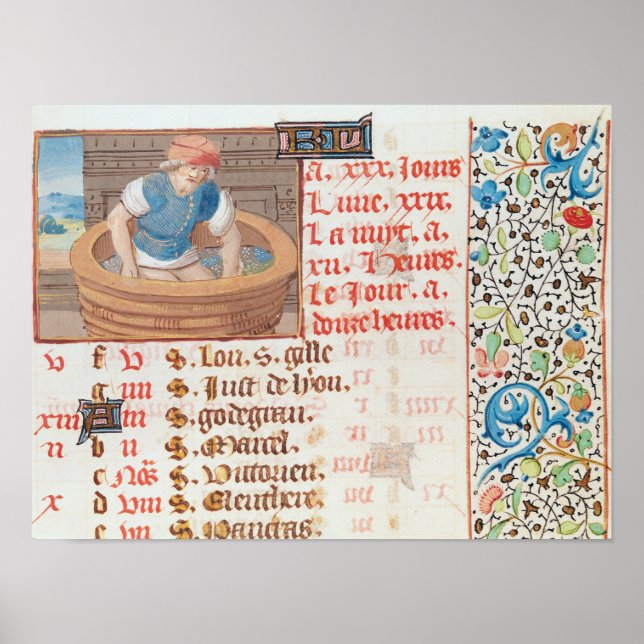 KL
a. xxx. Jours
Lune. xxix.
La nuyt. a.
xii. Heures.
Le Jour. a.
douze heures.
v f v S. Lou. S. gille
g iiii S. Just de lyon.
xiii A iii S. godegrau.
ii b ii S. Marcel.
c Noˢ S. Victorien.
x d viii S. Eleuthere.
e vii S. Pancras.